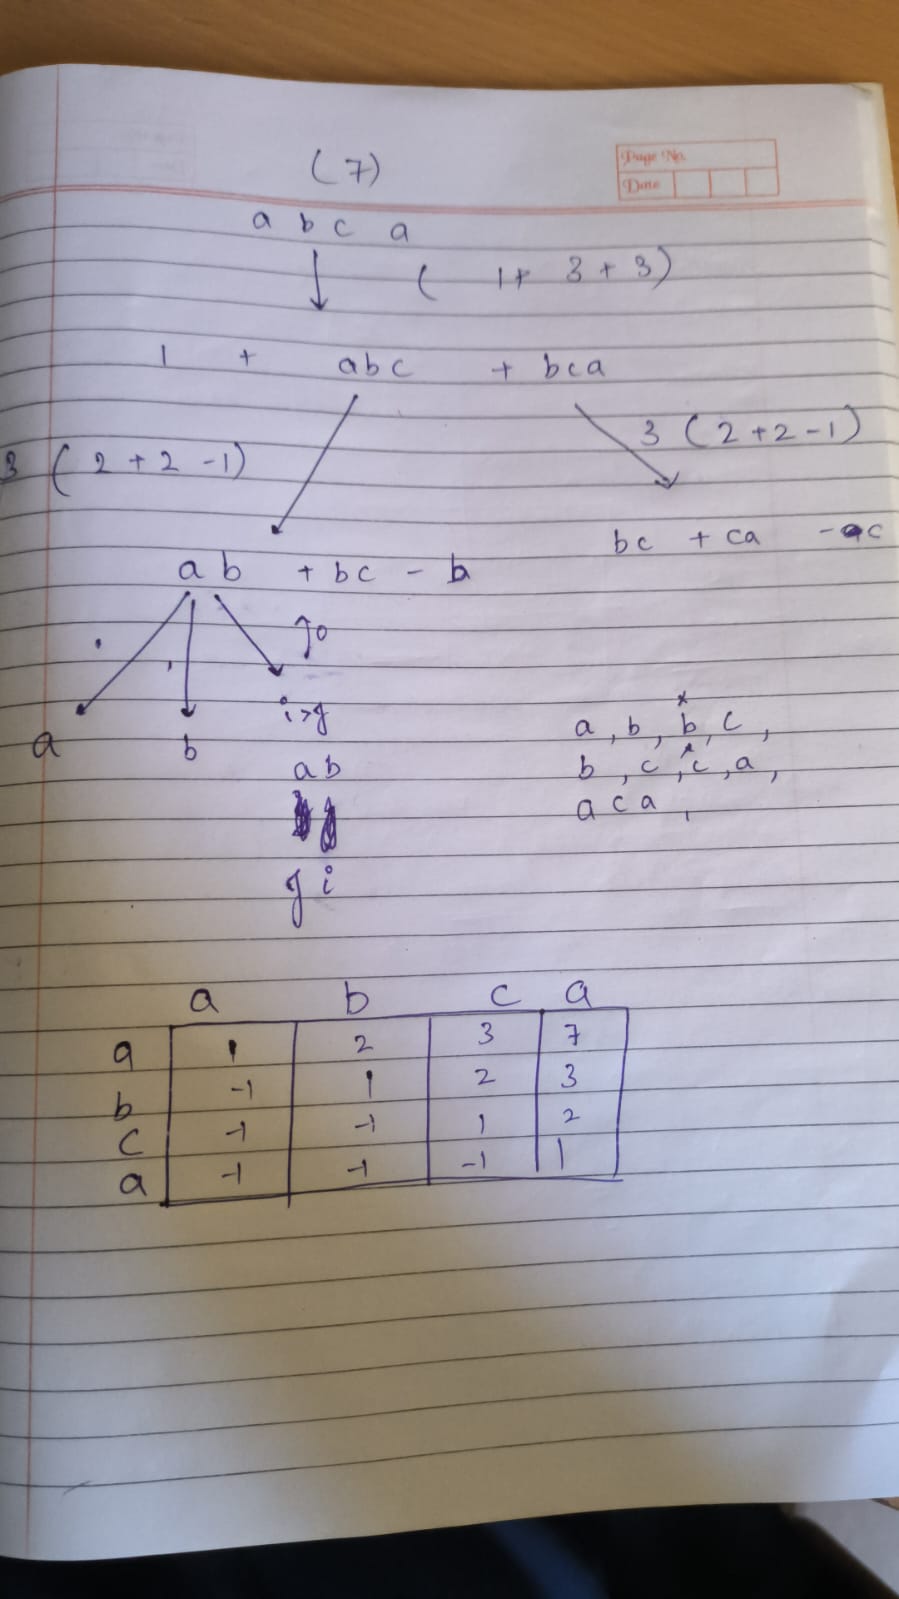 (7)
Page No.
Date
a b c a
( 1+ 3 + 3)
1 + abc + bca
3 ( 2 + 2 -1)
3 ( 2 +2 -1)
bc + ca - c
ab + bc - b
i>j
a b
a , b , b , c ,
b , c , c , a ,
a c a ,
ab
j i
a b c a
a 1 2 3 7
b -1 1 2 3
c -1 -1 1 2
a -1 -1 -1 1